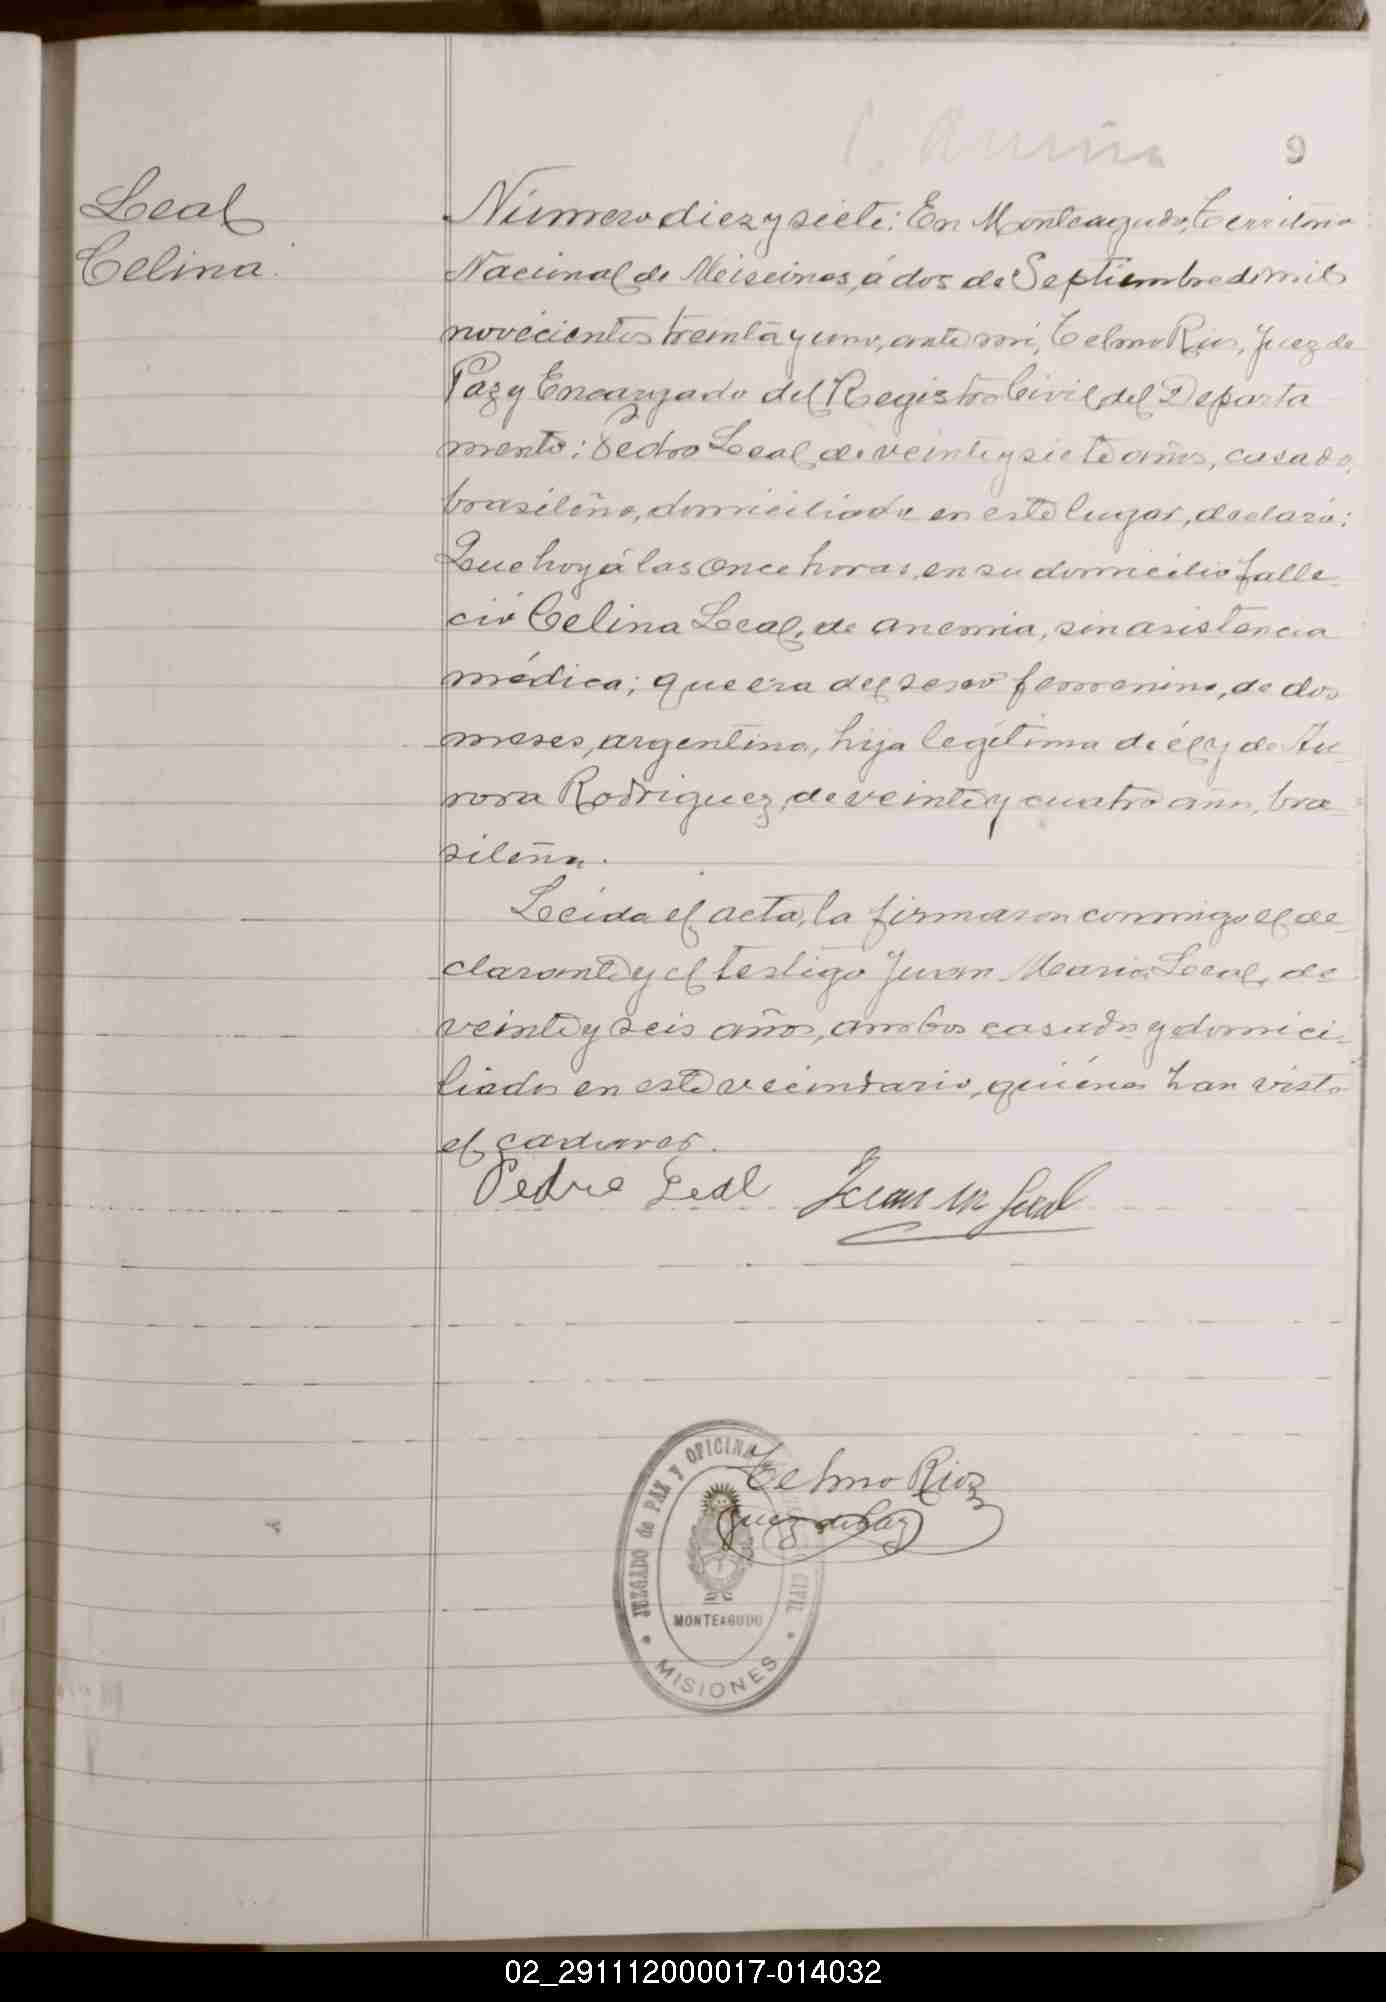 9
Leal
Celina.
Número diez y siete: En Monteagudo, Territorio
Nacional de Meisiones, á dos de Septiembre de mil
novecientos treinta y uno, ante mí, Telmo Rios, Juez de
Paz y Encargado del Registro Civil del Departa
mento: Pedro Leal, de veinte y siete años, casado,
brasileño, domiciliado en este lugar, declaró:
Que hoy á las once horas, en su domicilio falle-
ció Celina Leal, de anemia, sin asistencia
médica; que era del sexo femenino, de dos
meses, argentina, hija legítima de él y de Au-
rora Rodriguez, de veinte y cuatro años, bra-
sileña.
Leída el acta, la firmaron conmigo el de-
clarante y el testigo Juan Maria Leal, de
veinte y seis años, ambos casados y domici-
liados en este vecindario, quiénes han visto
el cadaver.
Pedro Leal Juan M Leal
Telmo Rios
Juez de Paz
JUZGADO de PAZ Y OFICINA CIVIL
MONTEAGUDO
MISIONES
02_291112000017-014032